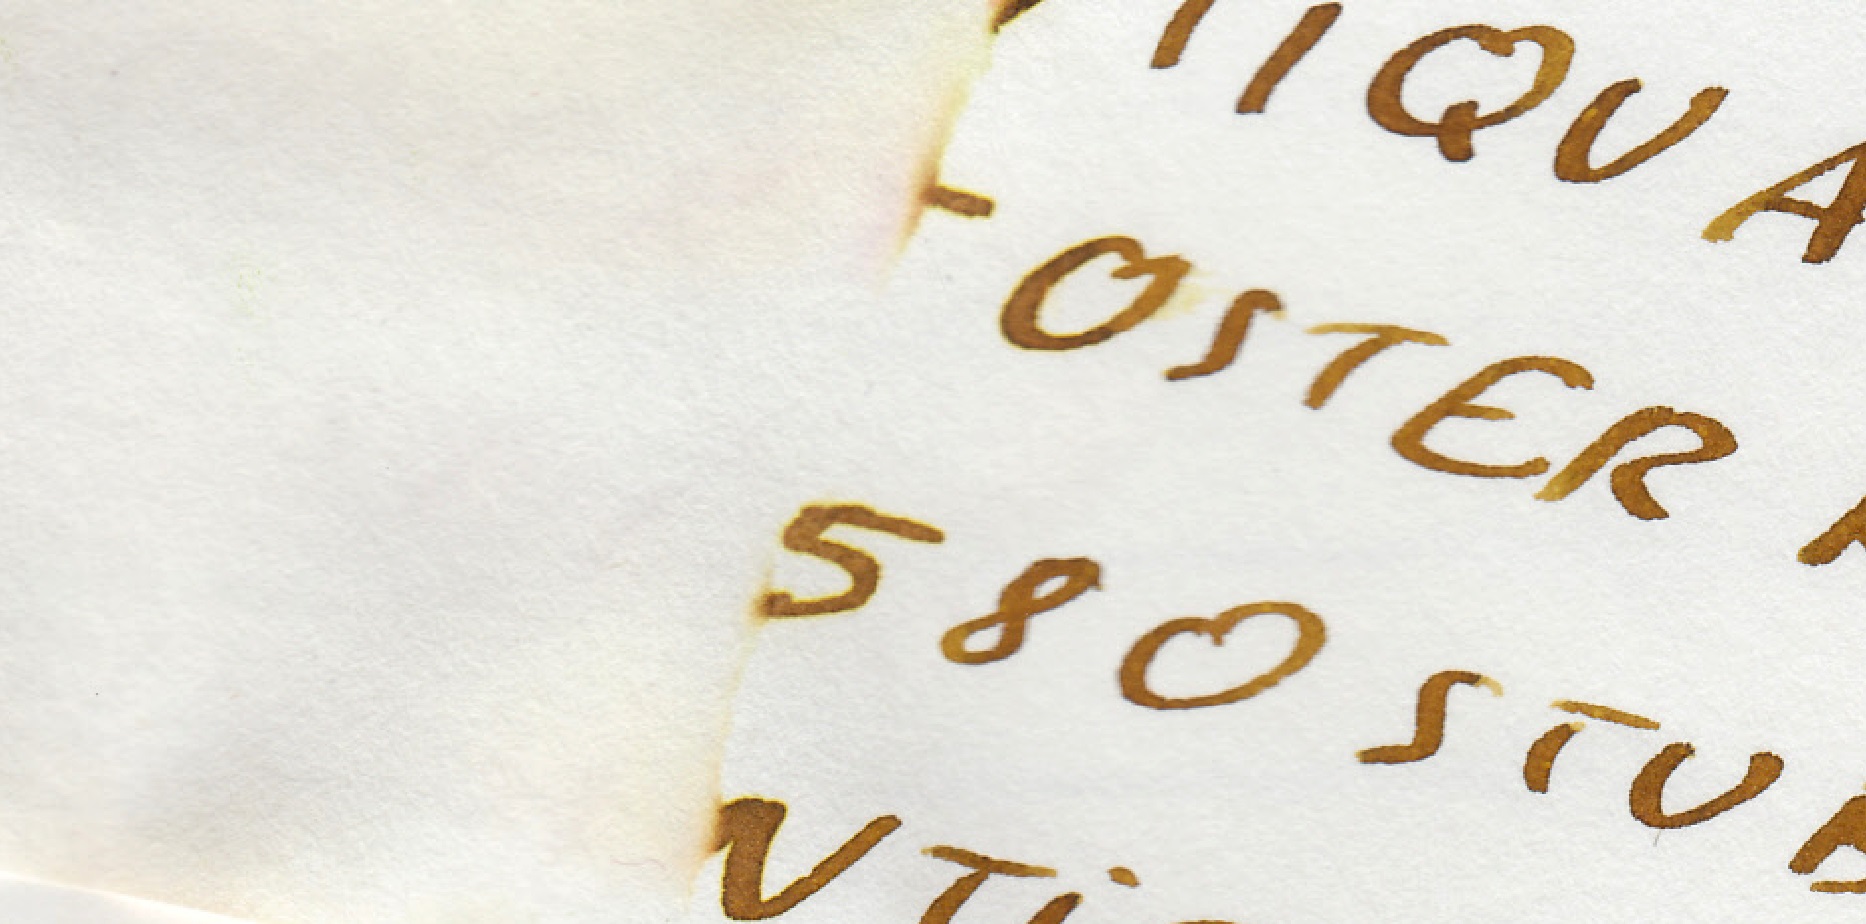 TIQUA
OSTER
580 STUB
NTi